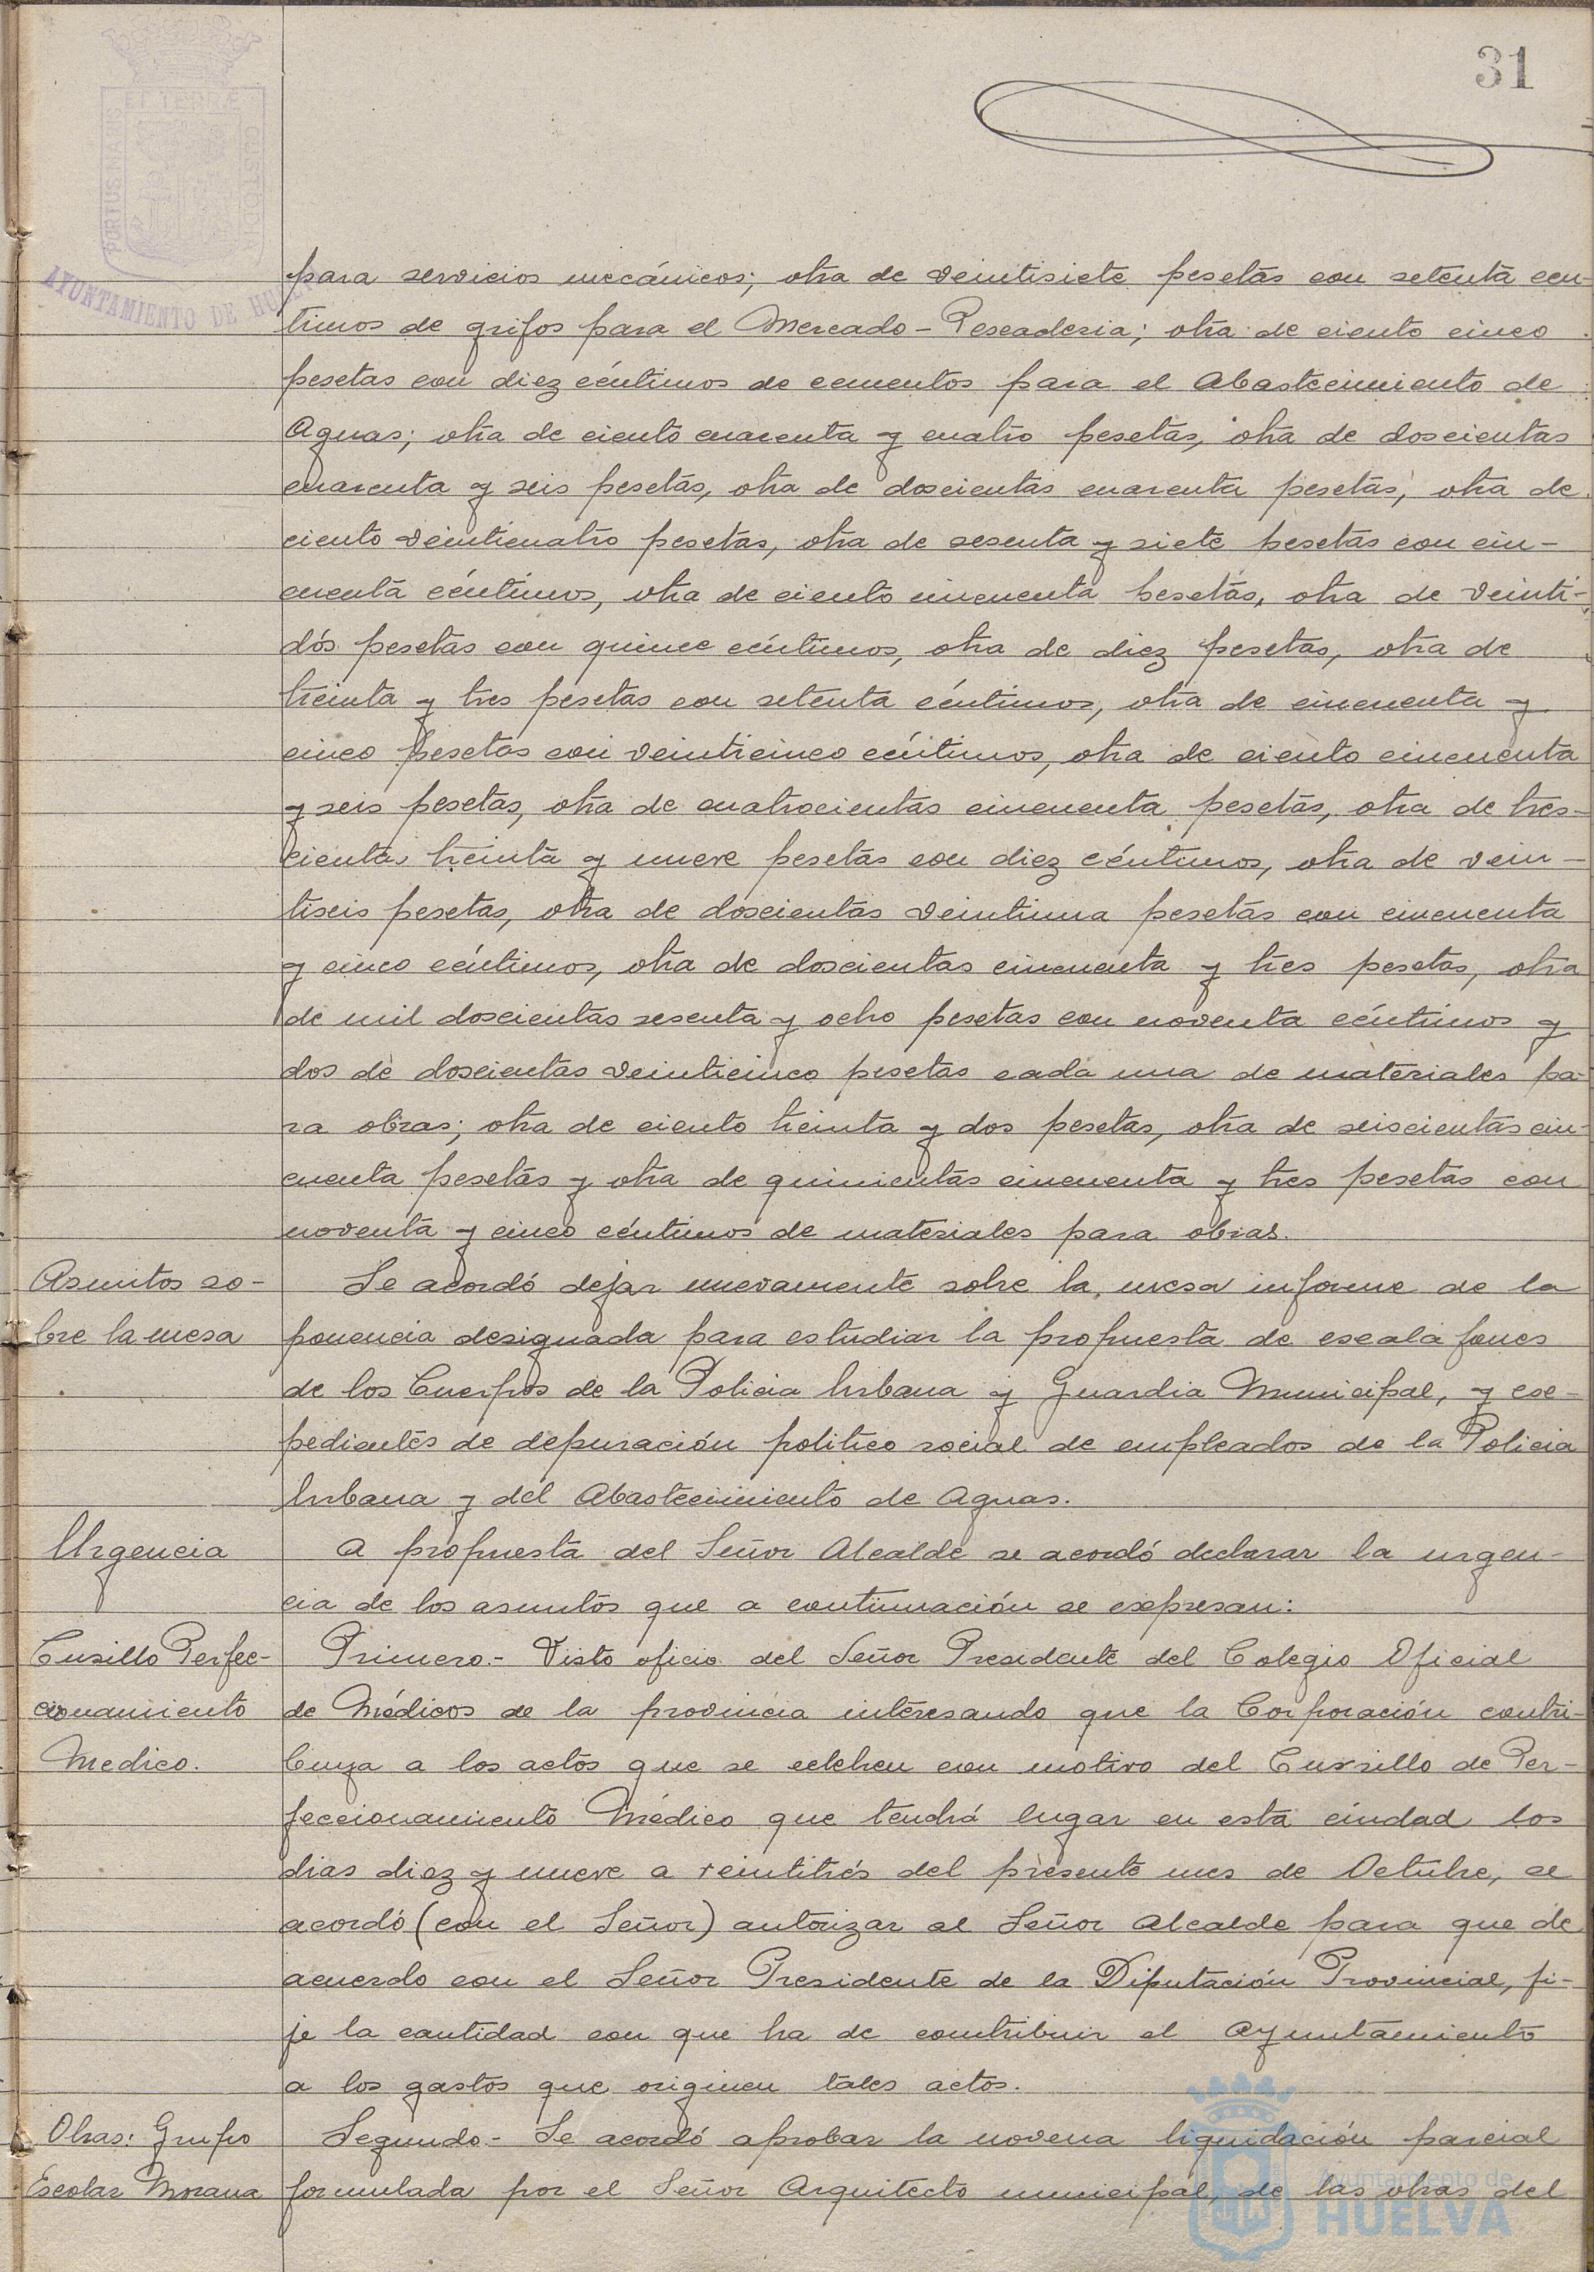 31
ET TERRÆ
PORTUS MARIS
CUSTODIA
AYUNTAMIENTO DE HU
para servicios mecánicos; otra de veintisiete pesetas con setenta cen-
timos de grifos para el Mercado-Pescaderia; otra de ciento cinco
pesetas con diez céntimos de cementos para el Abastecimiento de
Aguas; otra de ciento cuarenta y cuatro pesetas, otra de doscientas
cuarenta y seis pesetas, otra de doscientas cuarenta pesetas, otra de
ciento veinticuatro pesetas, otra de sesenta y siete pesetas con cin-
cuenta céntimos, otra de ciento cincuenta pesetas, otra de veinti-
dós pesetas con quince céntimos, otra de diez pesetas, otra de
treinta y tres pesetas con setenta céntimos, otra de cincuenta y
cinco pesetas con veinticinco céntimos, otra de ciento cincuenta
y seis pesetas, otra de cuatrocientas cincuenta pesetas, otra de tres-
cientas treinta y nueve pesetas con diez céntimos, otra de vein-
tiseis pesetas, otra de doscientas veintiuna pesetas con cincuenta
y cinco céntimos, otra de doscientas cincuenta y tres pesetas, otra
de mil doscientas sesenta y ocho pesetas con noventa céntimos y
dos de doscientas veinticinco pesetas cada una de materiales pa-
ra obras; otra de ciento treinta y dos pesetas, otra de seiscientas cin-
cuenta pesetas y otra de quinientas cincuenta y tres pesetas con
noventa y cinco céntimos de materiales para obras.
Asuntos so-
bre la mesa
Se acordó dejar nuevamente sobre la mesa informe de la
ponencia designada para estudiar la propuesta de escalafones
de los Cuerpos de la Policia Urbana y Guardia Municipal, y ex-
pedientes de depuración politico social de empleados de la Policia
Urbana y del Abastecimiento de Aguas.
Urgencia
A propuesta del Señor Alcalde se acordó declarar la urgen-
cia de los asuntos que a continuación se expresan:
Cursillo Perfec-
cionamiento
Medico.
Primero.- Visto oficio del Señor Presidente del Colegio Oficial
de Médicos de la provincia interesando que la Corporación contri-
buya a los actos que se celebren con motivo del Cursillo de Per-
feccionamiento Médico que tendrá lugar en esta ciudad los
dias diez y nueve a veintitrés del presente mes de Octubre, se
acordó (con el Señor) autorizar al Señor Alcalde para que de
acuerdo con el Señor Presidente de la Diputación Provincial, fi-
je la cantidad con que ha de contribuir el Ayuntamiento
a los gastos que originen tales actos.
Obras: Grupo
Escolar Morana
Segundo.- Se acordó aprobar la novena liquidación parcial
formulada por el Señor Arquitecto municipal, de las obras del
Ayuntamiento de
HUELVA